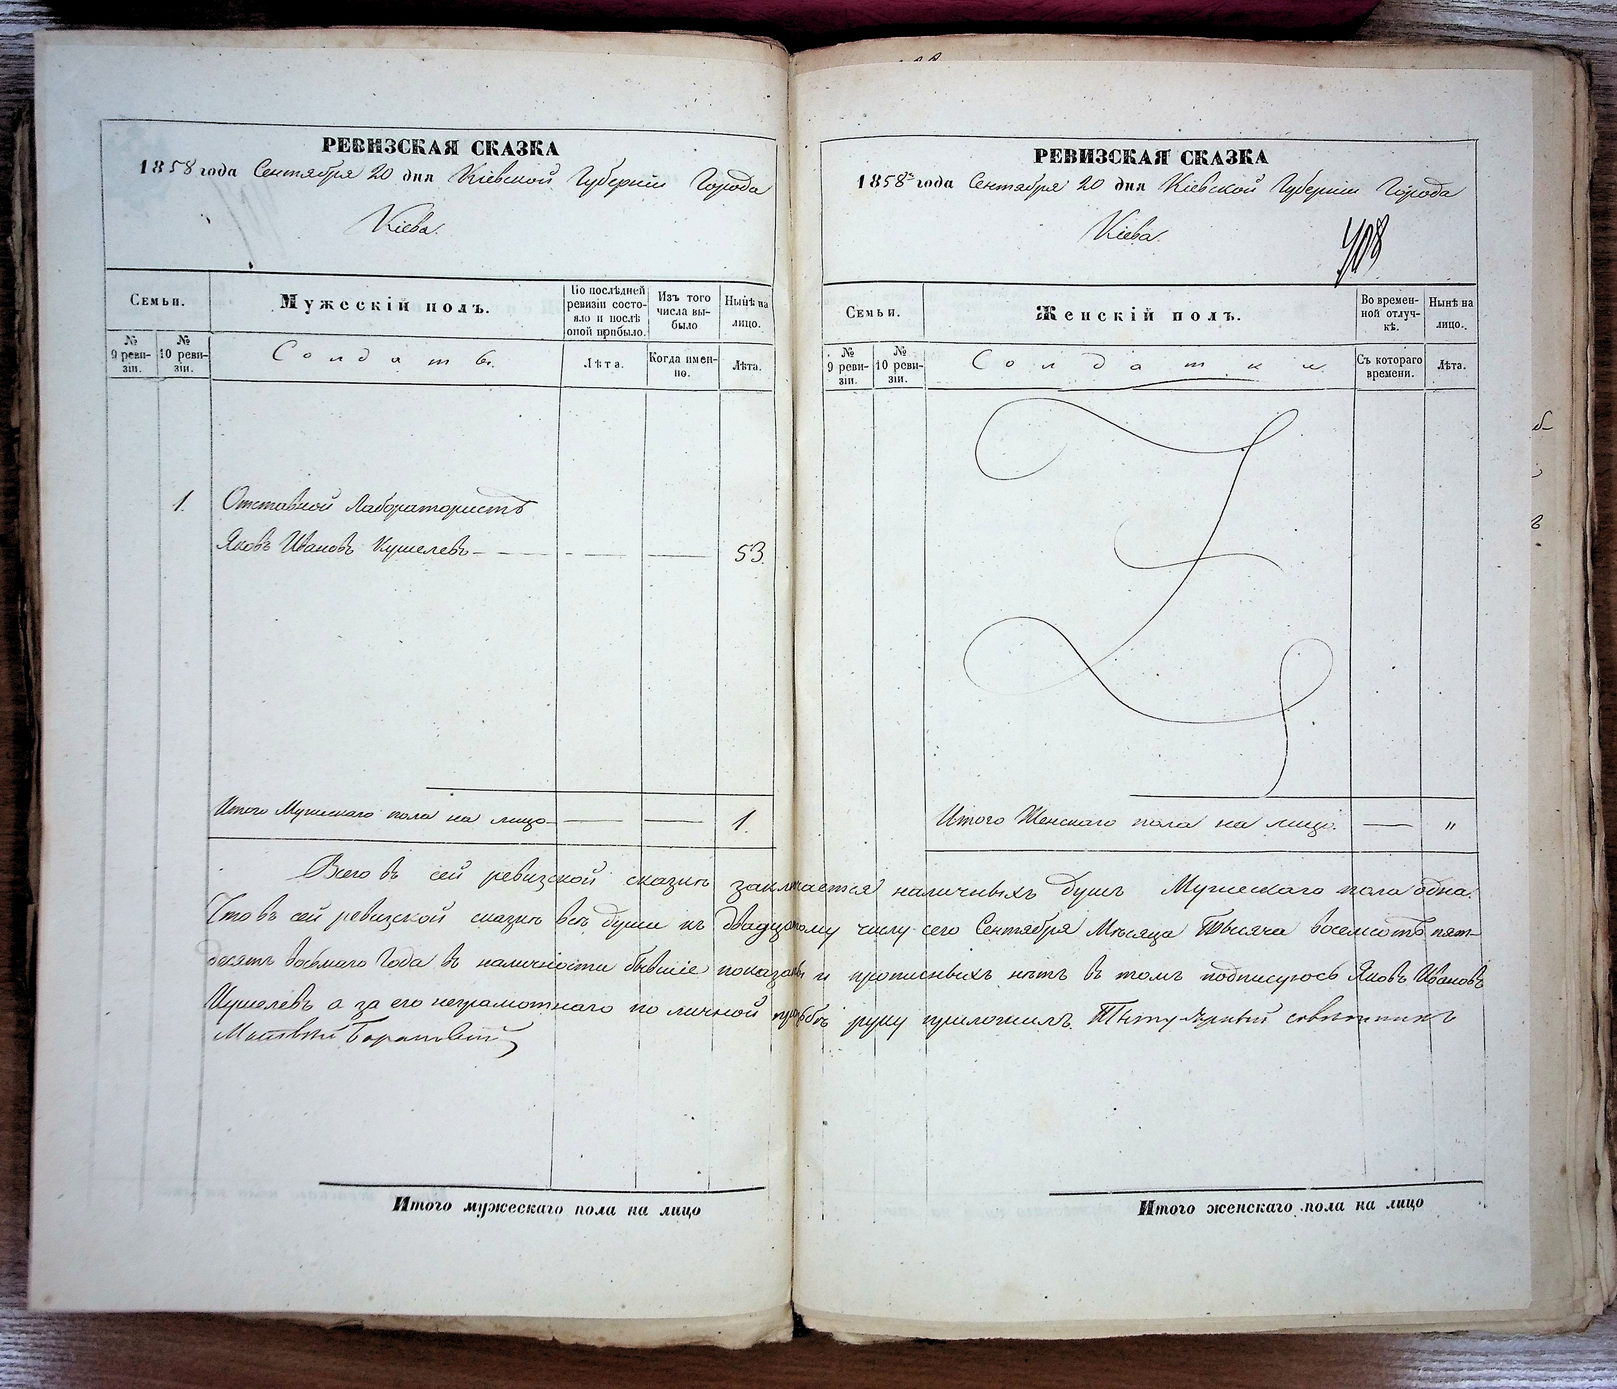 РЕВИЗСКАЯ СКАЗКА
1858 года Сентября 20 дня Кіевской Губерніи Города
Кіева.
Семьи.
Мужескій полъ.
По послѣдней ревизіи состояло и послѣ оной прибыло.
Изъ того числа выбыло
Нынѣ на лицо.
№ 9 ревизіи.
№ 10 ревизіи.
Солдаты.
Лѣта.
Когда именно.
Лѣта.
1. Отставной Лаборатористъ
Яковъ Ивановъ Кушелевъ — — — 53.
Итого Мужескаго пола на лицо — — 1.
РЕВИЗСКАЯ СКАЗКА
1858 года Сентября 20 дня Кіевской Губерніи Города
Кіева.
408
Семьи.
Женскій полъ.
Во временной отлучкѣ.
Нынѣ на лицо.
№ 9 ревизіи.
№ 10 ревизіи.
Солдатки.
Съ котораго времени.
Лѣта.
Итого Женскаго пола на лицо. — "
Всего въ сей ревизской сказкѣ заключается наличныхъ душъ Мужескаго пола одна.
Что въ сей ревизской сказкѣ всѣ души къ двадцатому числу сего Сентября Мѣсяца Тысяча восемсотъ пять-
десятъ восьмаго Года въ наличности бывшіе показаны и прописныхъ нѣтъ въ томъ подписуюсь Яковъ Ивановъ
Кушелевъ а за его неграмотнаго по личной прозьбѣ руку приложилъ Титулярный совѣтникъ
Матвѣй
Итого мужескаго пола на лицо
Итого женскаго пола на лицо